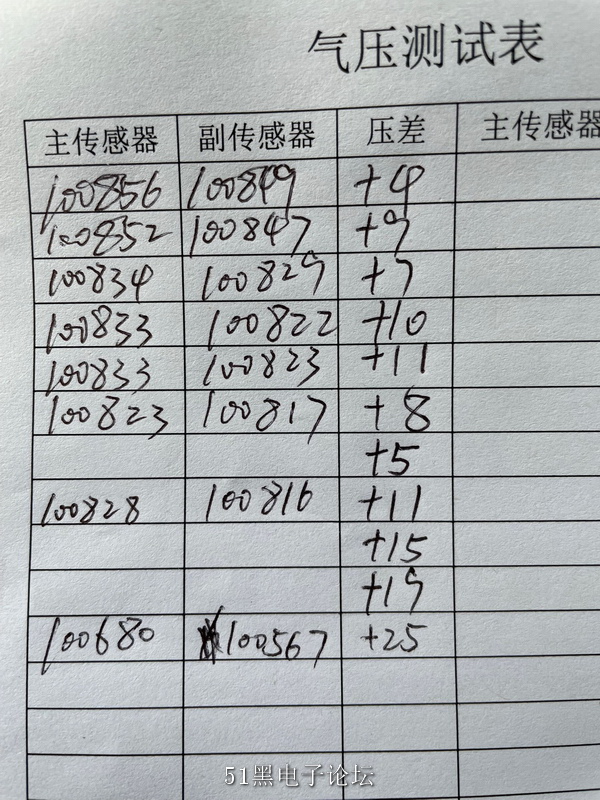 气压测试表
主传感器 副传感器 压差 主传感器
100856 100849 +4
100852 100847 +9
100834 100829 +7
100833 100822 +10
100833 100823 +11
100823 100817 +8
+5
100828 100816 +11
+15
+19
100680 100567 +25
51黑电子论坛